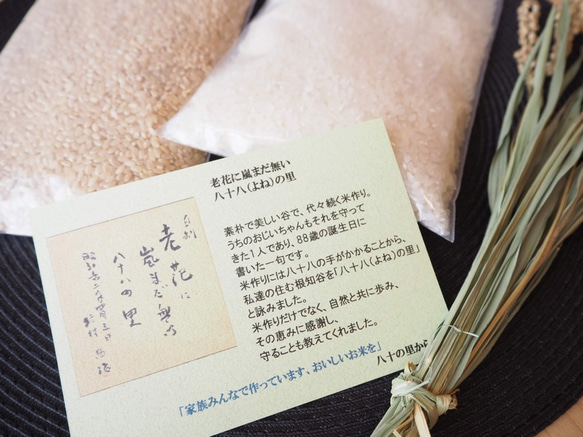 老花に嵐まだ無い
八十八(よね)の里
素朴で美しい谷で、代々続く米作り。
うちのおじいちゃんもそれを守って
きた1人であり、88歳の誕生日に
書いた一句です。
米作りには八十八の手がかかることから、
私達の住む根知谷を「八十八(よね)の里」
と詠みました。
米作りだけでなく、自然と共に歩み、
その恵みに感謝し、
守ることも教えてくれました。
八十の里から
「家族みんなで作っています、おいしいお米を」
老花に
嵐まだ無い
八十八の里